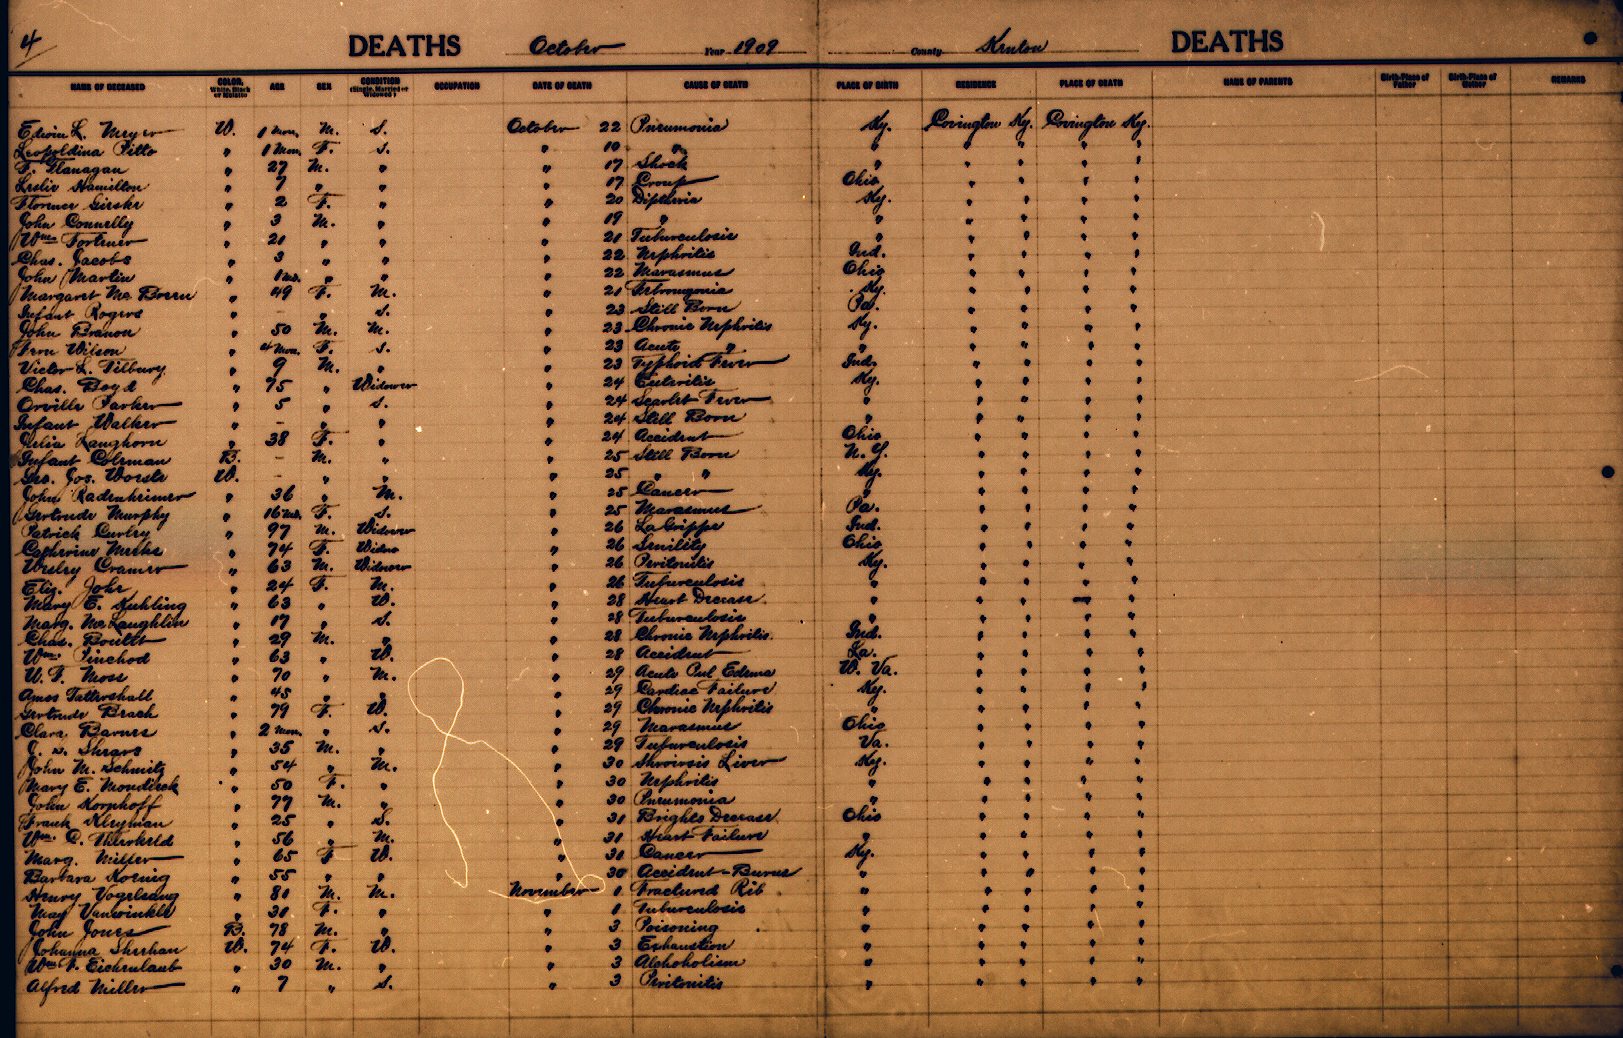 4
DEATHS October Year 1909 County Kenton DEATHS
NAME OF DECEASED COLOR, White, Black or Mulatto AGE SEX CONDITION (Single, Married or Widowed) OCCUPATION DATE OF DEATH CAUSE OF DEATH PLACE OF BIRTH RESIDENCE PLACE OF DEATH NAME OF PARENTS Birth-Place of Father Birth-Place of Mother REMARKS
Edwin L. Meyer W. 1 Mon. M. S. October 22 Pneumonia Ky. Covington Ky. Covington Ky.
Leopoldina Pitto " 1 Mon. F. S. " 10 " " " " " "
F. Flanagan " 27 M. " " 17 Shock " " " " "
Leslie Hamilton " 7 " " " 17 Croup Ohio " " " "
Florence Gieske " 2 F. " " 20 Diptheria Ky. " " " "
John Connelly " 3 M. " " 19 " " " " " "
Wm Fortner " 21 " " " 21 Tuburculosis " " " " "
Chas. Jacobs " 3 " " " 22 Nephritis Ind. " " " "
John Martin " 1 Mo. " " " 22 Marasmus Ohio " " " "
Margaret Mc Breen " 49 F. M. " 21 Ky. " " " "
Infant Rogers " - " S. " 23 Still Born Pa. " " " "
John Branon " 50 M. M. " 23 Chronic Nephritis Ky. " " " "
Fern Wilson " 4 Mon. F. S. " 23 Acute " " " " " "
Victor L. Tilbury " 9 M. " " 23 Typhoid Fever Ind. " " " "
Chas. Boyd " 75 " Widower " 24 Enteritis Ky. " " " "
Orville Parker " 5 " S. " 24 Scarlet Fever " " " " "
Infant Walker " - " " " 24 Still Born " " " " "
Julia Langhorn " 38 F. " " 24 Accident Ohio " " " "
Infant Coleman B. - M. " " 25 Still Born N. Y. " " " "
Geo. Jos. Worste W. - " " " 25 " " Ky. " " " "
John Radenheimer " 36 " M. " 25 Cancer " " " " "
Gertrude Murphy " 16 Mo. F. S. " 25 Marasmus Pa. " " " "
Patrick Curley " 97 M. Widower " 26 La Grippe Ind. " " " "
Catherine Meeks " 74 F. Widow " 26 Senility Ohio " " " "
Wesley Cramer " 63 M. Widower " 26 Peritonitis Ky. " " " "
Eliz. John " 24 F. M. " 26 Tuburculosis " " " " "
Mary E. Kuhling " 63 " W. " 28 Heart Decease " " " "
Marg. McLaughlin " 17 " S. " 28 Tuburculosis " " " " "
Chas. Boulte " 29 M. " " 28 Chronic Nephritis. Ind. " " " "
Wm. Pinchod " 63 " W. " 28 Accident La. " " " "
W. F. Moss " 70 " M. " 29 Acute Pul Edema W. Va. " " " "
Amos Tattershall " 45 " " " 29 Cardiac Failure Ky. " " " "
Gertrude Brach " 79 F. W. " 29 Chronic Nephritis " " " " "
Clara Barnes " 2 Mon. " S. " 29 Marasmus Ohio " " " "
J. W. Shears " 35 M. " " 29 Tuburculosis Va. " " " "
John M. Schmitz " 54 " M. " 30 Liver Ky. " " " "
Mary E. Mondieck " 50 F. " " 30 Nephritis " " " " "
John Korphoff " 77 M. " " 30 Pneumonia " " " " "
Frank Kleyman " 25 " S. " 31 Brights Decease Ohio " " " "
Wm. C. Threlkeld " 56 " M. " 31 Heart Failure " " " " "
Marg. Miller " 65 F W. " 31 Cancer Ky. " " " "
Barbara Koenig " 55 " " " 30 Accident-Burns " " " " "
Henry Vogelsang " 81 M. M. November 1 Fractured Rib " " " " "
May Vanwinkle " 31 F. " " 1 Tuburculosis " " " " "
John Jones B. 78 M. " " 3 Poisoning " " " " "
Johanna Sheehan W. 74 F. W. " 3 Exhaustion " " " " "
Wm F. Eichenlaub " 30 M. " " 3 Alchoholism " " " " "
Alfred Miller " 7 " S. " 3 Peritonitis " " " " "